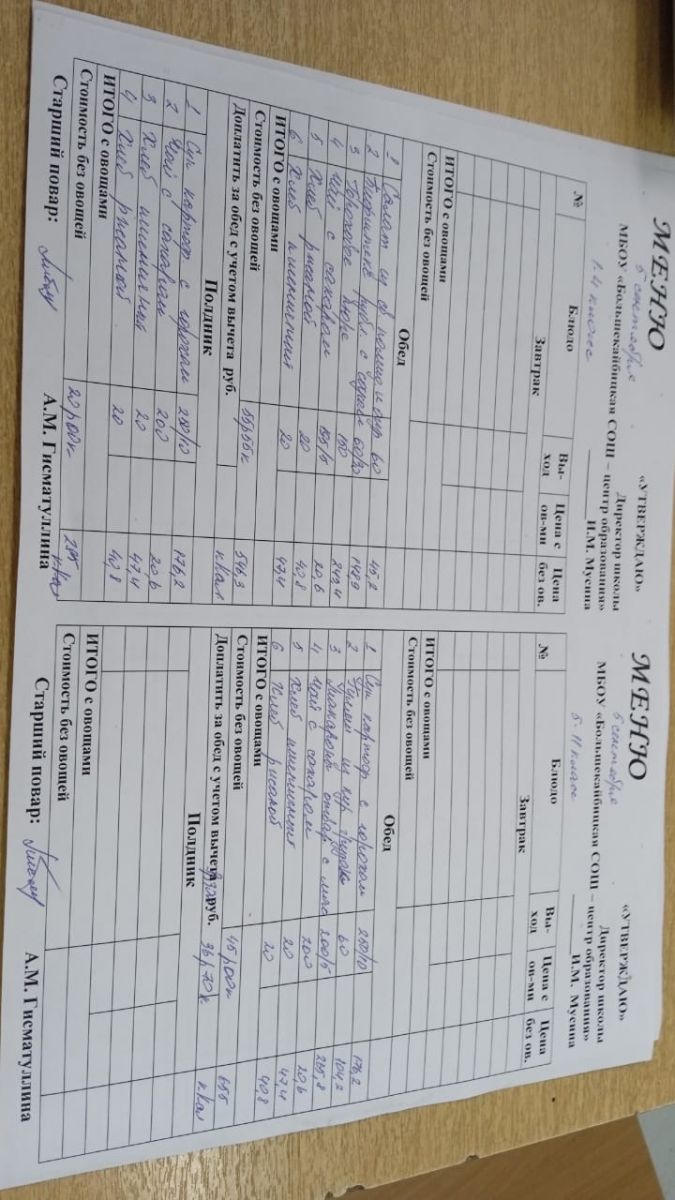 МЕНЮ
5 сентября
«УТВЕРЖДАЮ»
Директор школы
МБОУ «Большекайбицкая СОШ – центр образования»
И.М. Мусина
1-4 классс
№ Блюдо Вы-ход Цена с ов-ми Цена без ов.
Завтрак
ИТОГО с овощами
Стоимость без овощей
Обед
1 Салат из св помид и огур 60 45,2
2 Бифштекс рубл. с 148,9
3 Гороховое пюре 150
4 Чай с сахаром 195/5 20,6
5 Хлеб ржаной 20 40,8
6 Хлеб пшеничный 20 47,4
ИТОГО с овощами
Стоимость без овощей 55р55к 546,3
Доплатить за обед с учетом вычета руб. ккал
Полдник
1 Суп картоф с горохом 250/10 176,2
2 Чай с сахаром 200 20,6
3 Хлеб пшеничный 20 47,4
4 Хлеб ржаной 20 40,8
ИТОГО с овощами
Стоимость без овощей 20р00к 285 ккал
Старший повар: А.М. Гисматуллина
МЕНЮ
5 сентября
«УТВЕРЖДАЮ»
Директор школы
МБОУ «Большекайбицкая СОШ – центр образования»
И.М. Мусина
5-11 класс
№ Блюдо Вы-ход Цена с ов-ми Цена без ов.
Завтрак
ИТОГО с овощами
Стоимость без овощей
Обед
1 Суп картоф с горохом 250/10 176,2
2 из кур грудки 60 104,2
3 Макароны отвар с мас 200/5 265,8
4 Чай с сахаром 200 20,6
5 Хлеб пшеничный 20 47,4
6 Хлеб ржаной 20 40,8
ИТОГО с овощами
Стоимость без овощей 45р00к 655
Доплатить за обед с учетом вычета руб. 36р70к ккал
Полдник
ИТОГО с овощами
Стоимость без овощей
Старший повар: А.М. Гисматуллина